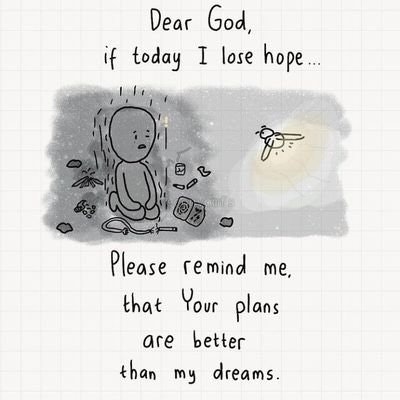 Dear God,
if today I lose hope...
Please remind me,
that Your plans
are better
than my dreams.